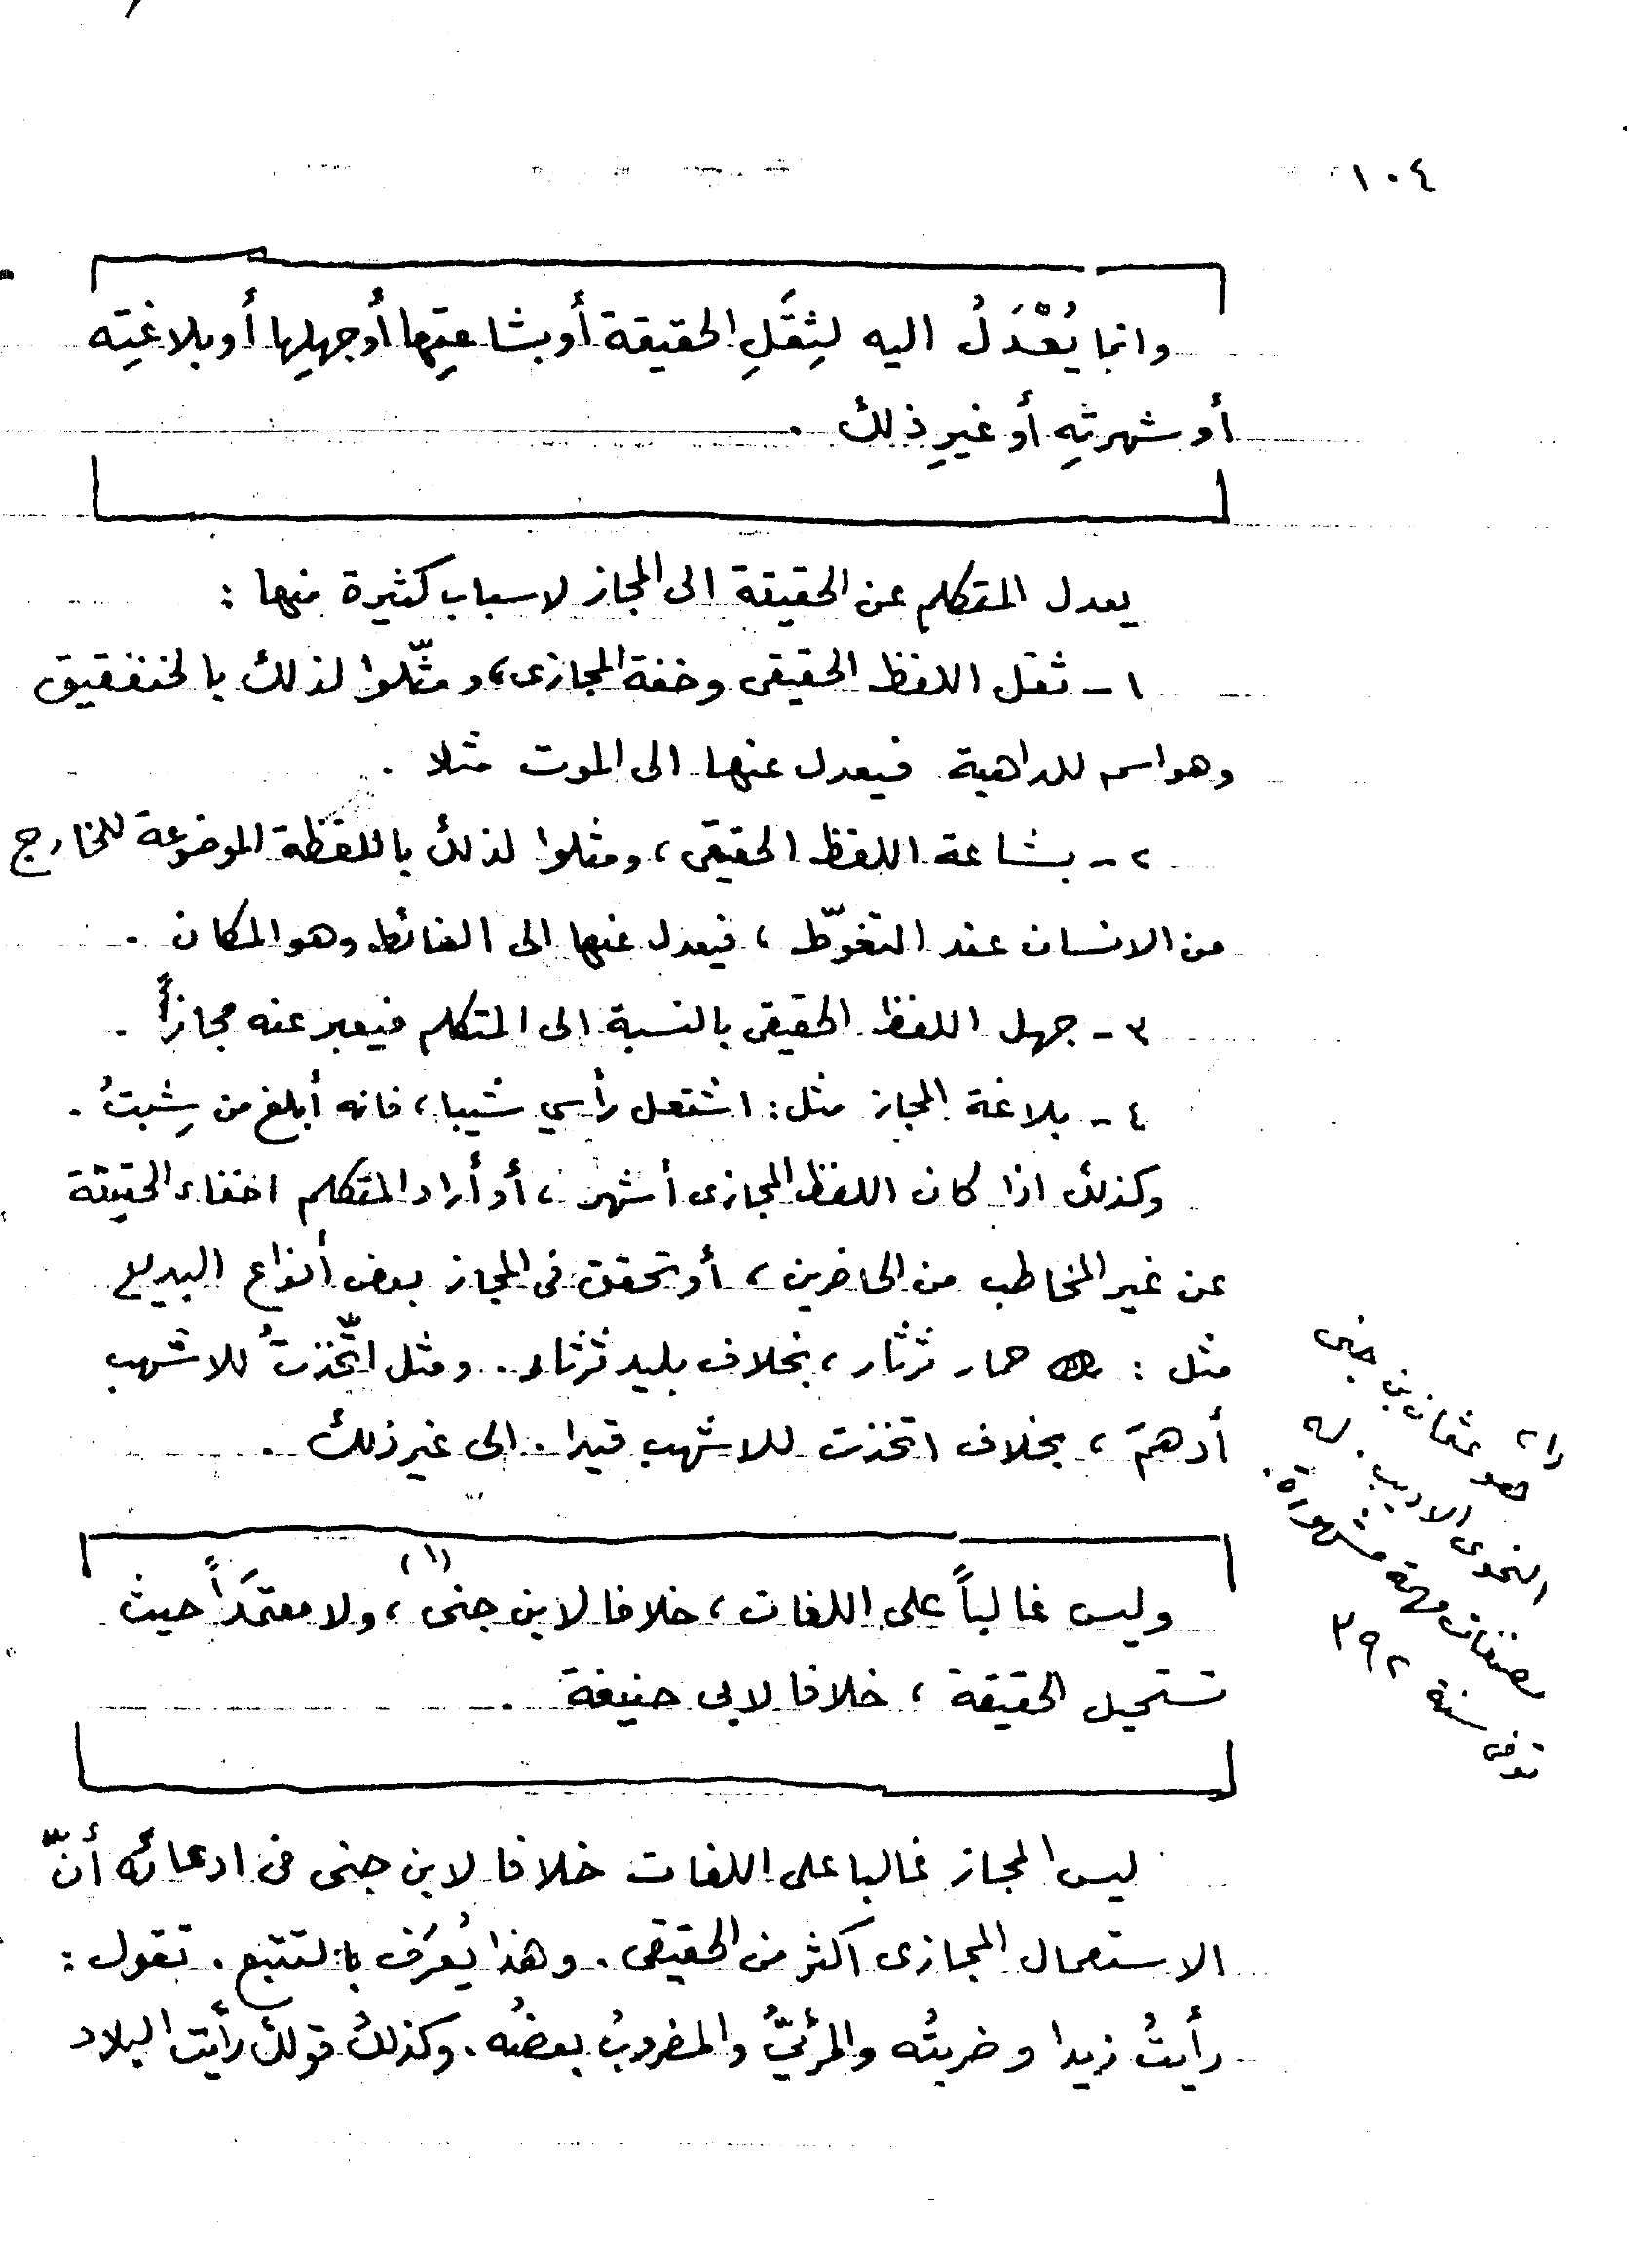 ١٠٤
وانما يُعْدَلُ اليه لِثِقَلِ الحقيقة أو بشاعتِها أو جهلِها أو بلاغتِه
أو شهرتِهِ أو غيرِ ذلك .
يعدل المتكلم عن الحقيقة الى المجاز لاسباب كثيرة منها :
١ - ثقل اللفظ الحقيقى وخفة المجازى، ومثّلوا لذلك بالخنفقيق
وهو اسم للداهية فيعدل عنها الى الموت مثلا .
٢ - بشاعة اللفظ الحقيقى ، ومثلوا لذلك باللفظة الموضوعة للخارج
من الانسان عند التغوّط ، فيعدل عنها الى الغائط وهو المكان .
٣ - جهل اللفظ الحقيقى بالنسبة الى المتكلم فيعبر عنه مجازاً .
٤ - بلاغة المجاز مثل : اشتعل رأسي شيبا ، فانه أبلغ من شِبتُ .
وكذلك اذا كان اللفظ المجازى أشهر ، أو أراد المتكلم اخفاء الحقيقة
عن غير المخاطب من الحاضرين ، أو تحقق فى المجاز بعض أنواع البديع
مثل : حمار ثرثار ، بخلاف بليد ثرثار . ومثل اتّخذتُ للاشهب
أدهمَ ، بخلاف اتخذت للاشهب قيدا . الى غير ذلك .
وليس غالباً على اللغات ، خلافا لابن جنى (١) ، ولا معتمَداً حيث
تستحيل الحقيقة ، خلافا لابى حنيفة .
ليس المجاز غالبا على اللغات خلافا لابن جنى فى ادعائه أنّ
الاستعمال المجازى اكثر من الحقيقى . وهذا يُعرَف بالتتبع . تقول :
رأيتُ زيدا وضربتُه والمرئيُّ والمضروبُ بعضُه . وكذلك قولك رأيت البلاد
(١) هو عثمان بن جنى
النحوى الاديب . له
مصنفات مهمة مشهورة .
توفى سنة ٣٩٢